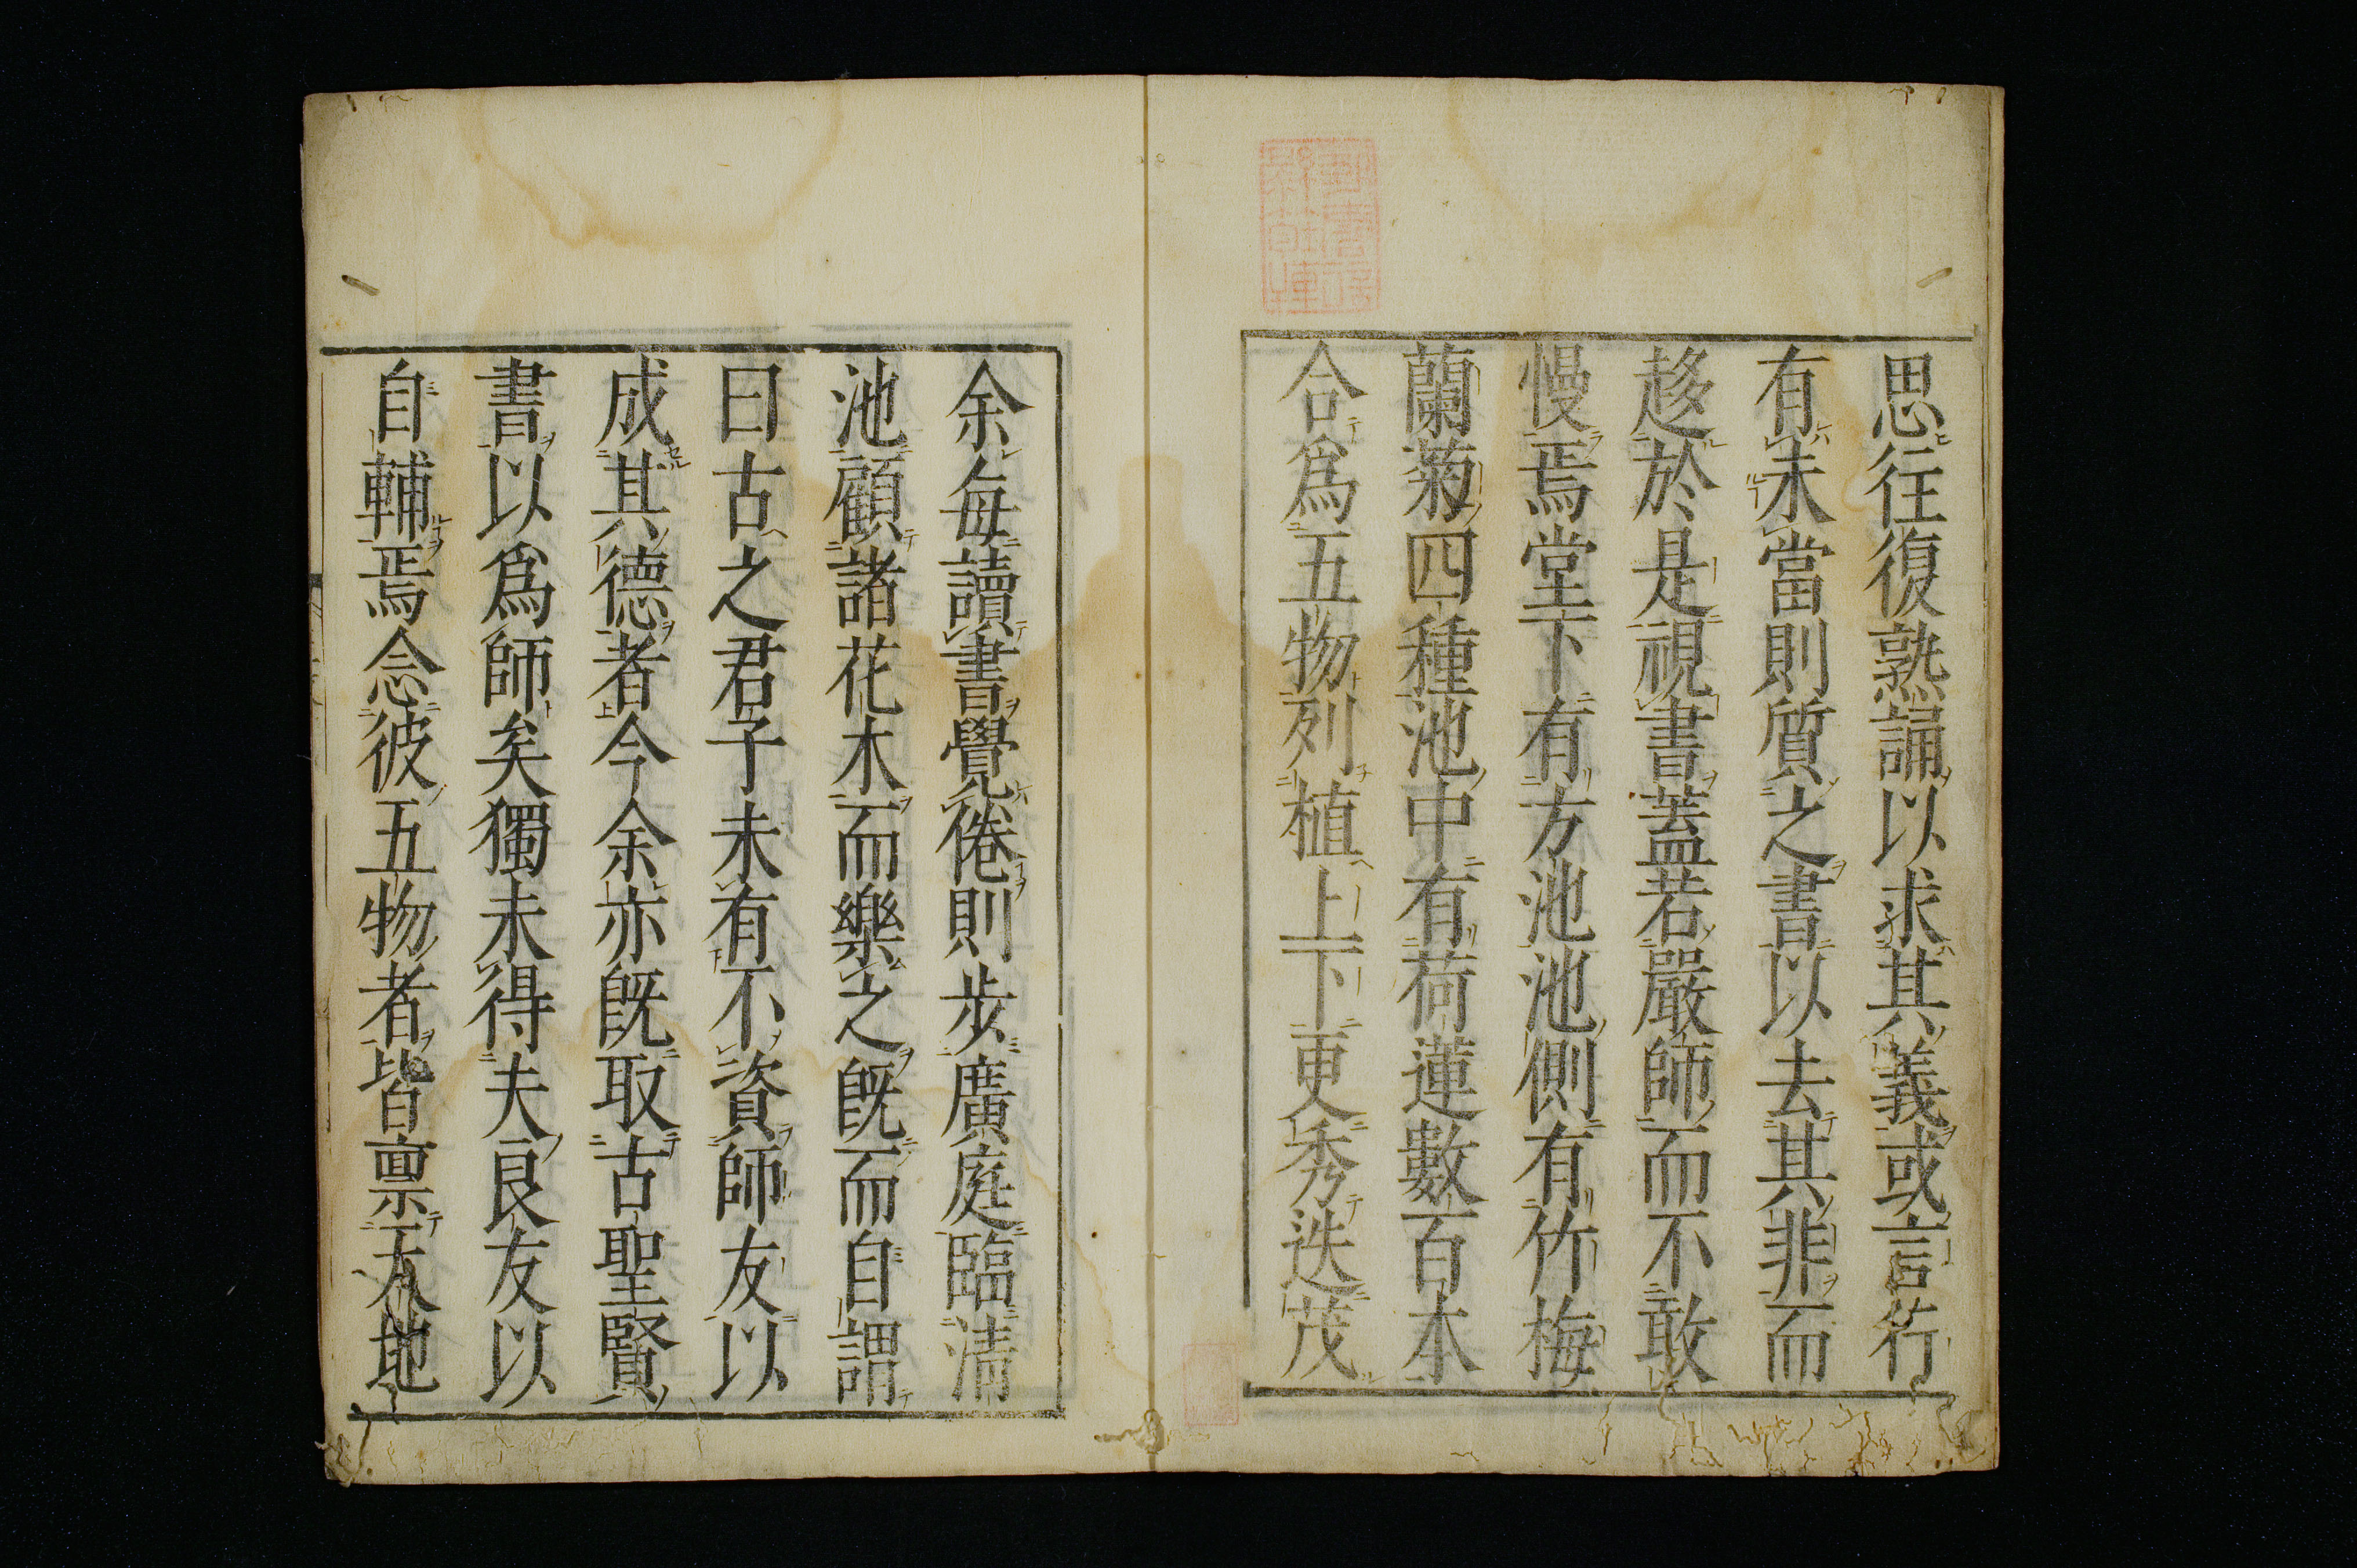 思往復熟誦以求其義或言行
有未當則質之書以去其非而
趍於是視書蓋若嚴師而不敢
慢焉堂下有方池池側有竹梅
蘭菊四種池中有荷蓮數百本
合爲五物列植上下更秀迭茂
余每讀書覺倦則步廣庭臨清
池顧諸花木而樂之既而自謂
曰古之君子未有不資師友以
成其德者今余亦既取古聖賢
書以爲師矣獨未得夫良友以
自輔焉念彼五物者皆禀天地